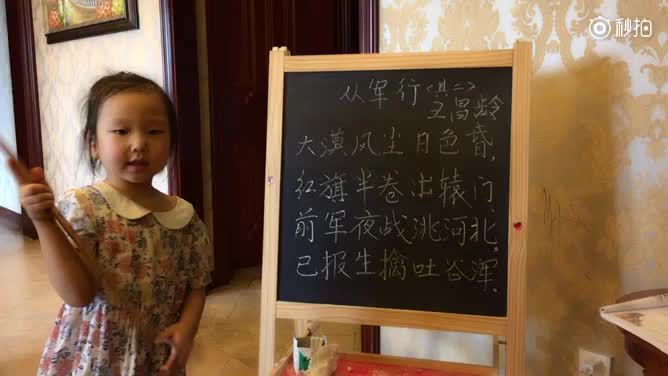 秒拍
从军行<其二>
王昌龄
大漠风尘日色昏,
红旗半卷出辕门
前军夜战洮河北,
已报生擒吐谷浑.